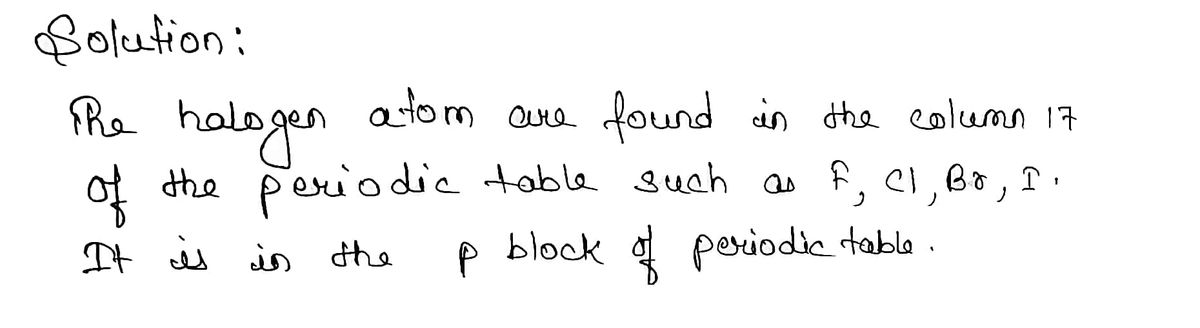 Solution:
The halogen atom are found in the column 17
of the periodic table such as F, Cl, Br, I.
It is in the p block of periodic table.